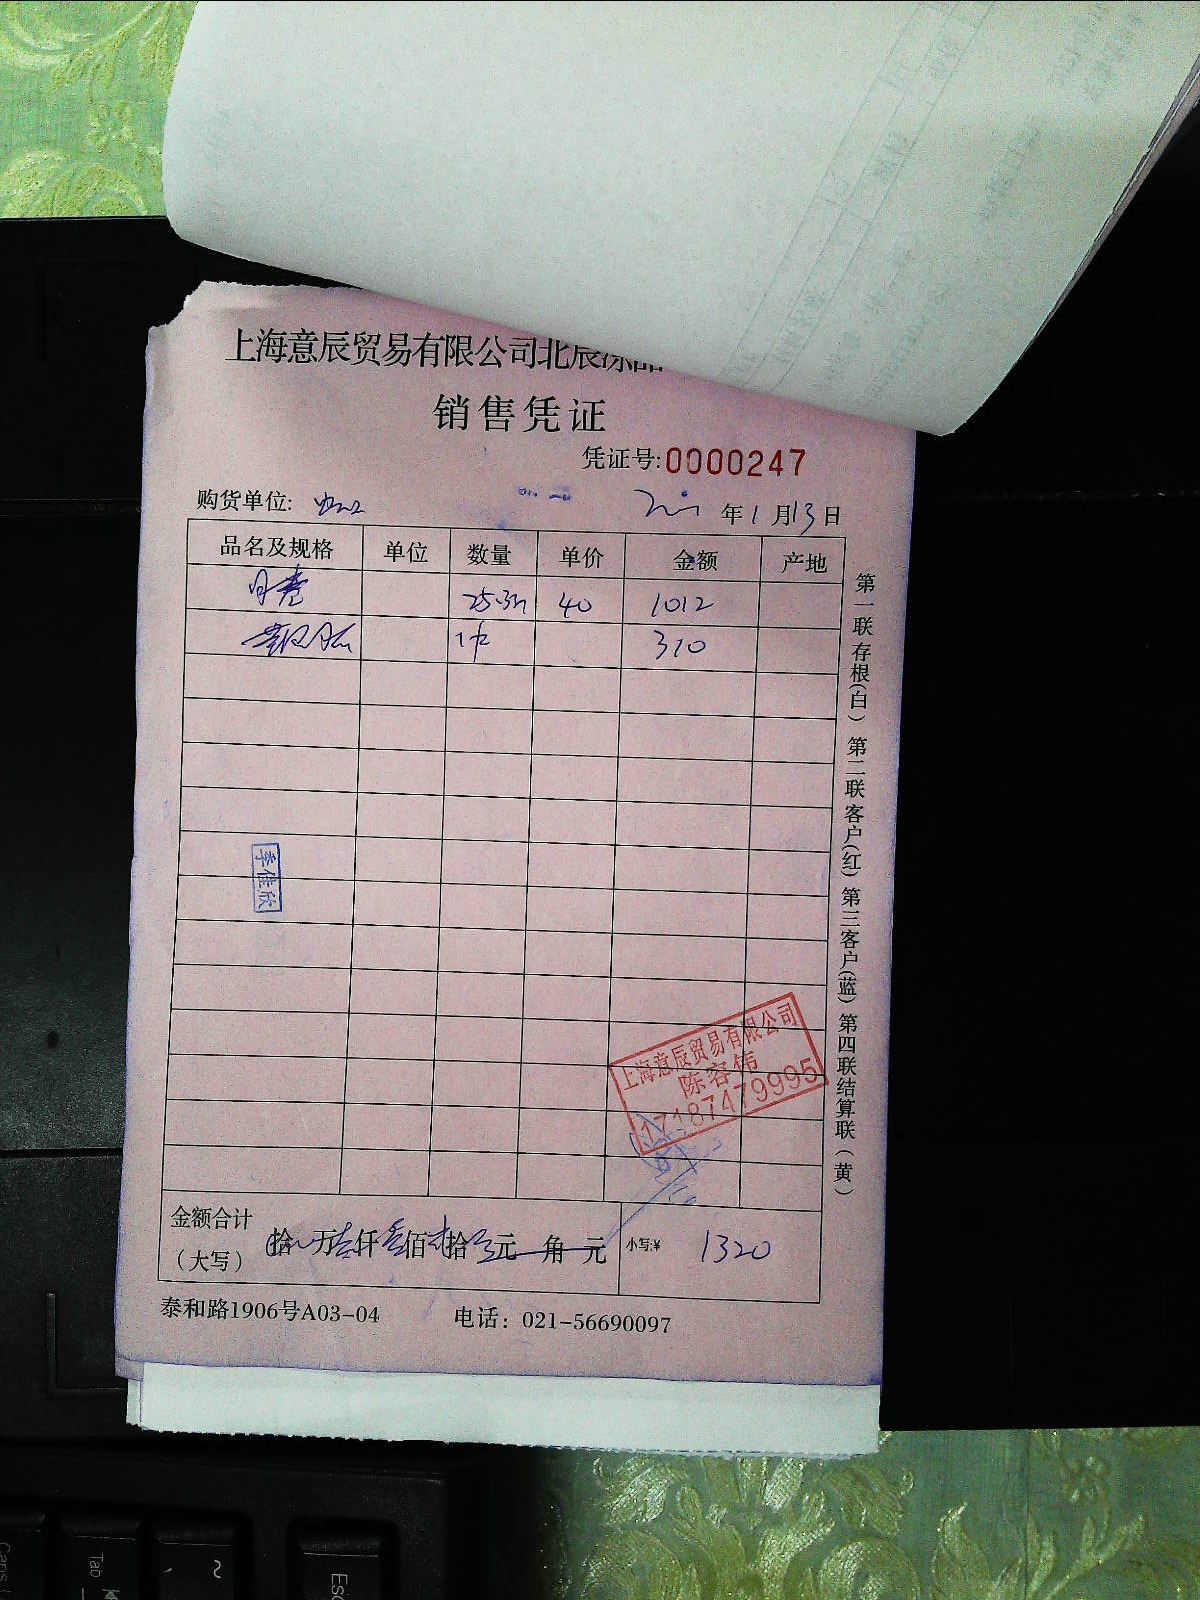 上海意辰贸易有限公司北辰冻品
销售凭证
凭证号:0000247
购货单位: 年1月13日
品名及规格 单位 数量 单价 金额 产地
25.3 40 1012
1 310
季佳欣
上海意辰贸易有限公司
陈容伟
17187479995
金额合计
(大写) 拾 万 仟 佰 拾 元 角 元 小写:¥ 1320
泰和路1906号A03-04 电话：021-56690097
第一联存根(白) 第二联客户(红) 第三客户(蓝) 第四联结算联(黄)